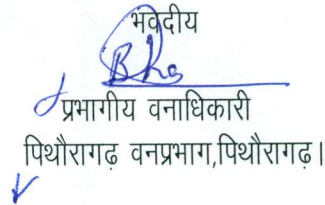 भवदीय
प्रभागीय वनाधिकारी
पिथौरागढ़ वनप्रभाग,पिथौरागढ़।